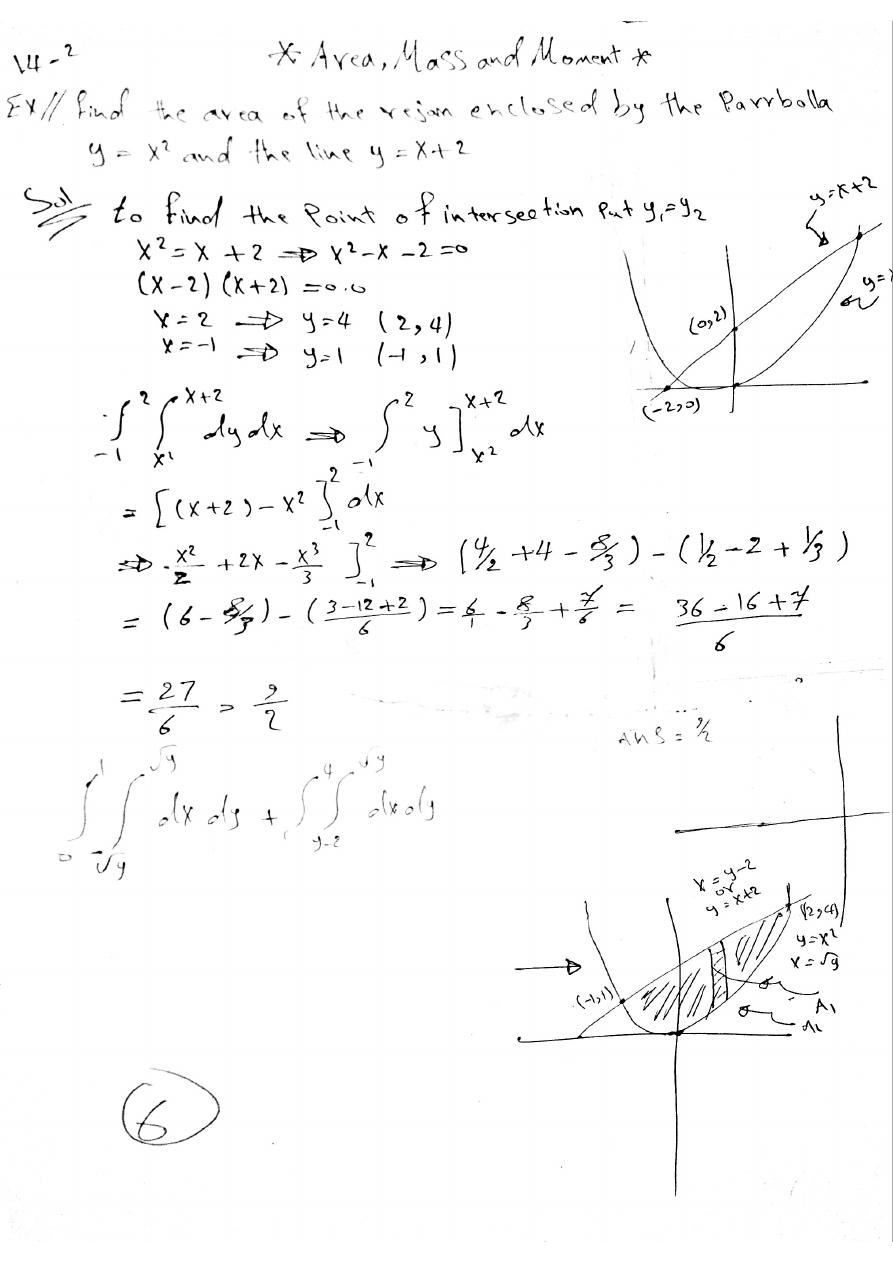 14-2
* Area, Mass and Moment *
Ex// find the area of the rejon enclosed by the Parrbolla
y = x² and the line y = x+2
Sol
to find the Point of intersection Put y₁=y₂
x² = x + 2 ⇒ x² - x - 2 = 0
(x-2) (x+2) = 0.0
x = 2 ⇒ y=4 (2,4)
x = -1 ⇒ y=1 (-1,1)
y=x+2
y=
(0,2)
(-2,0)
∫₋₁² ∫ₓ²ˣ⁺² dy dx ⇒ ∫₋₁² y]ₓ²ˣ⁺² dx
= [(x+2) - x²]₋₁² dx
⇒ x²/2 + 2x - x³/3 ]₋₁² ⇒ (4/2 + 4 - 8/3) - (1/2 - 2 + 1/3)
= (6 - 8/3) - ( (3-12+2)/6 ) = 6/1 - 8/3 + 7/6 = (36 - 16 + 7)/6
= 27/6 = 9/2
ANS = 9/2
∫₀¹ ∫₋√y^√y dx dy + ∫₁⁴ ∫y-2^√y dx dy
x = y-2
or
y = x+2
(2,4)
y=x²
x=√y
(-1,1)
A₁
6